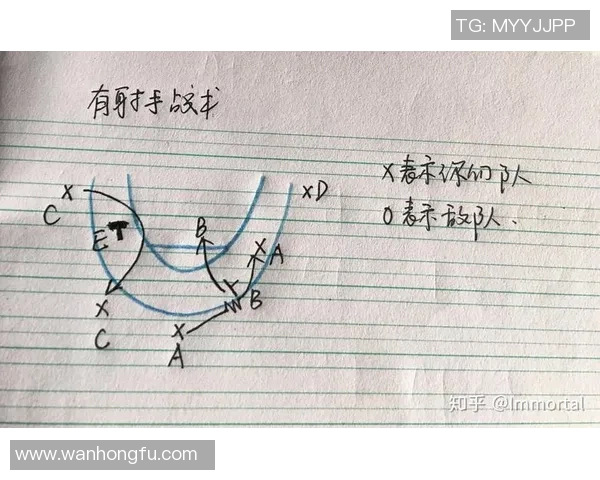 TG: MYYJJPP
有射手战术
X表示你的队
O表示敌队.
X
C
E
B
X
A
XD
X
C
B
X
A
知乎 @Immortal
www.wanhongfu.com